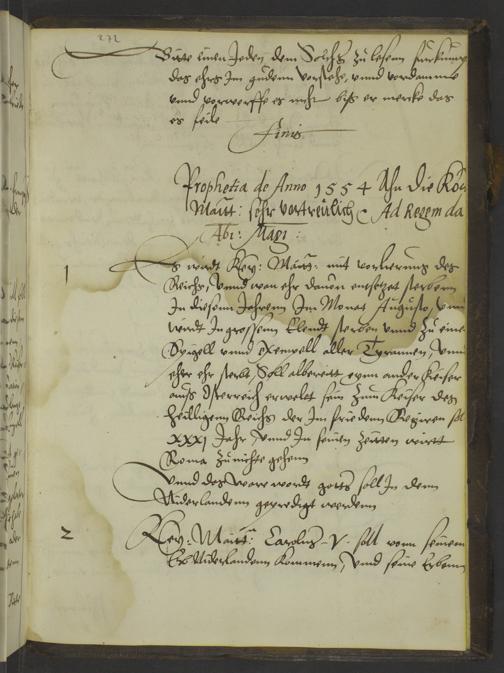 272
Bitte einen Jeden dem Solchs zu lesenn fürkumpt
das ehrs Im guedenn verstehe, vnnd verdamme
vnnd verwerffe es nicht biß er mercke das
es feile
Finis
Prophetia de Anno 1554 Ahn die Kö
Maitt: sehr vertreulich Ad Regem da
Abr: Magi:
1
Es wirdt Key: Maitt: mit verlierung des
Reichs, vnnd wan ehr dauon entsetzet sterbenn
In diesem Jahrenn Im Monat Augusto, vnnd
wirdt In grossem Elendt sterben vnnd zu eine
Spigell vnnd Exempell aller Tyrannen, vnnd
ehe ehr sterbt Soll albereitt eynn ander Keiser
auß Osterreich erwelet sein zum Keiser des
Heilligenn Reichs der Im friedenn Regiren sol
xxxj Jahr, vnnd In seinen Zeitten wirtt
Roma zu nichte gehenn
Vnnd das ware wordt gotts soll In denn
Niderlandenn gepredigt werdenn
2
Key: Maitt: Carolus V. soll vonn seinenn
Niderlandenn kommenn, vnnd seine Erbenn